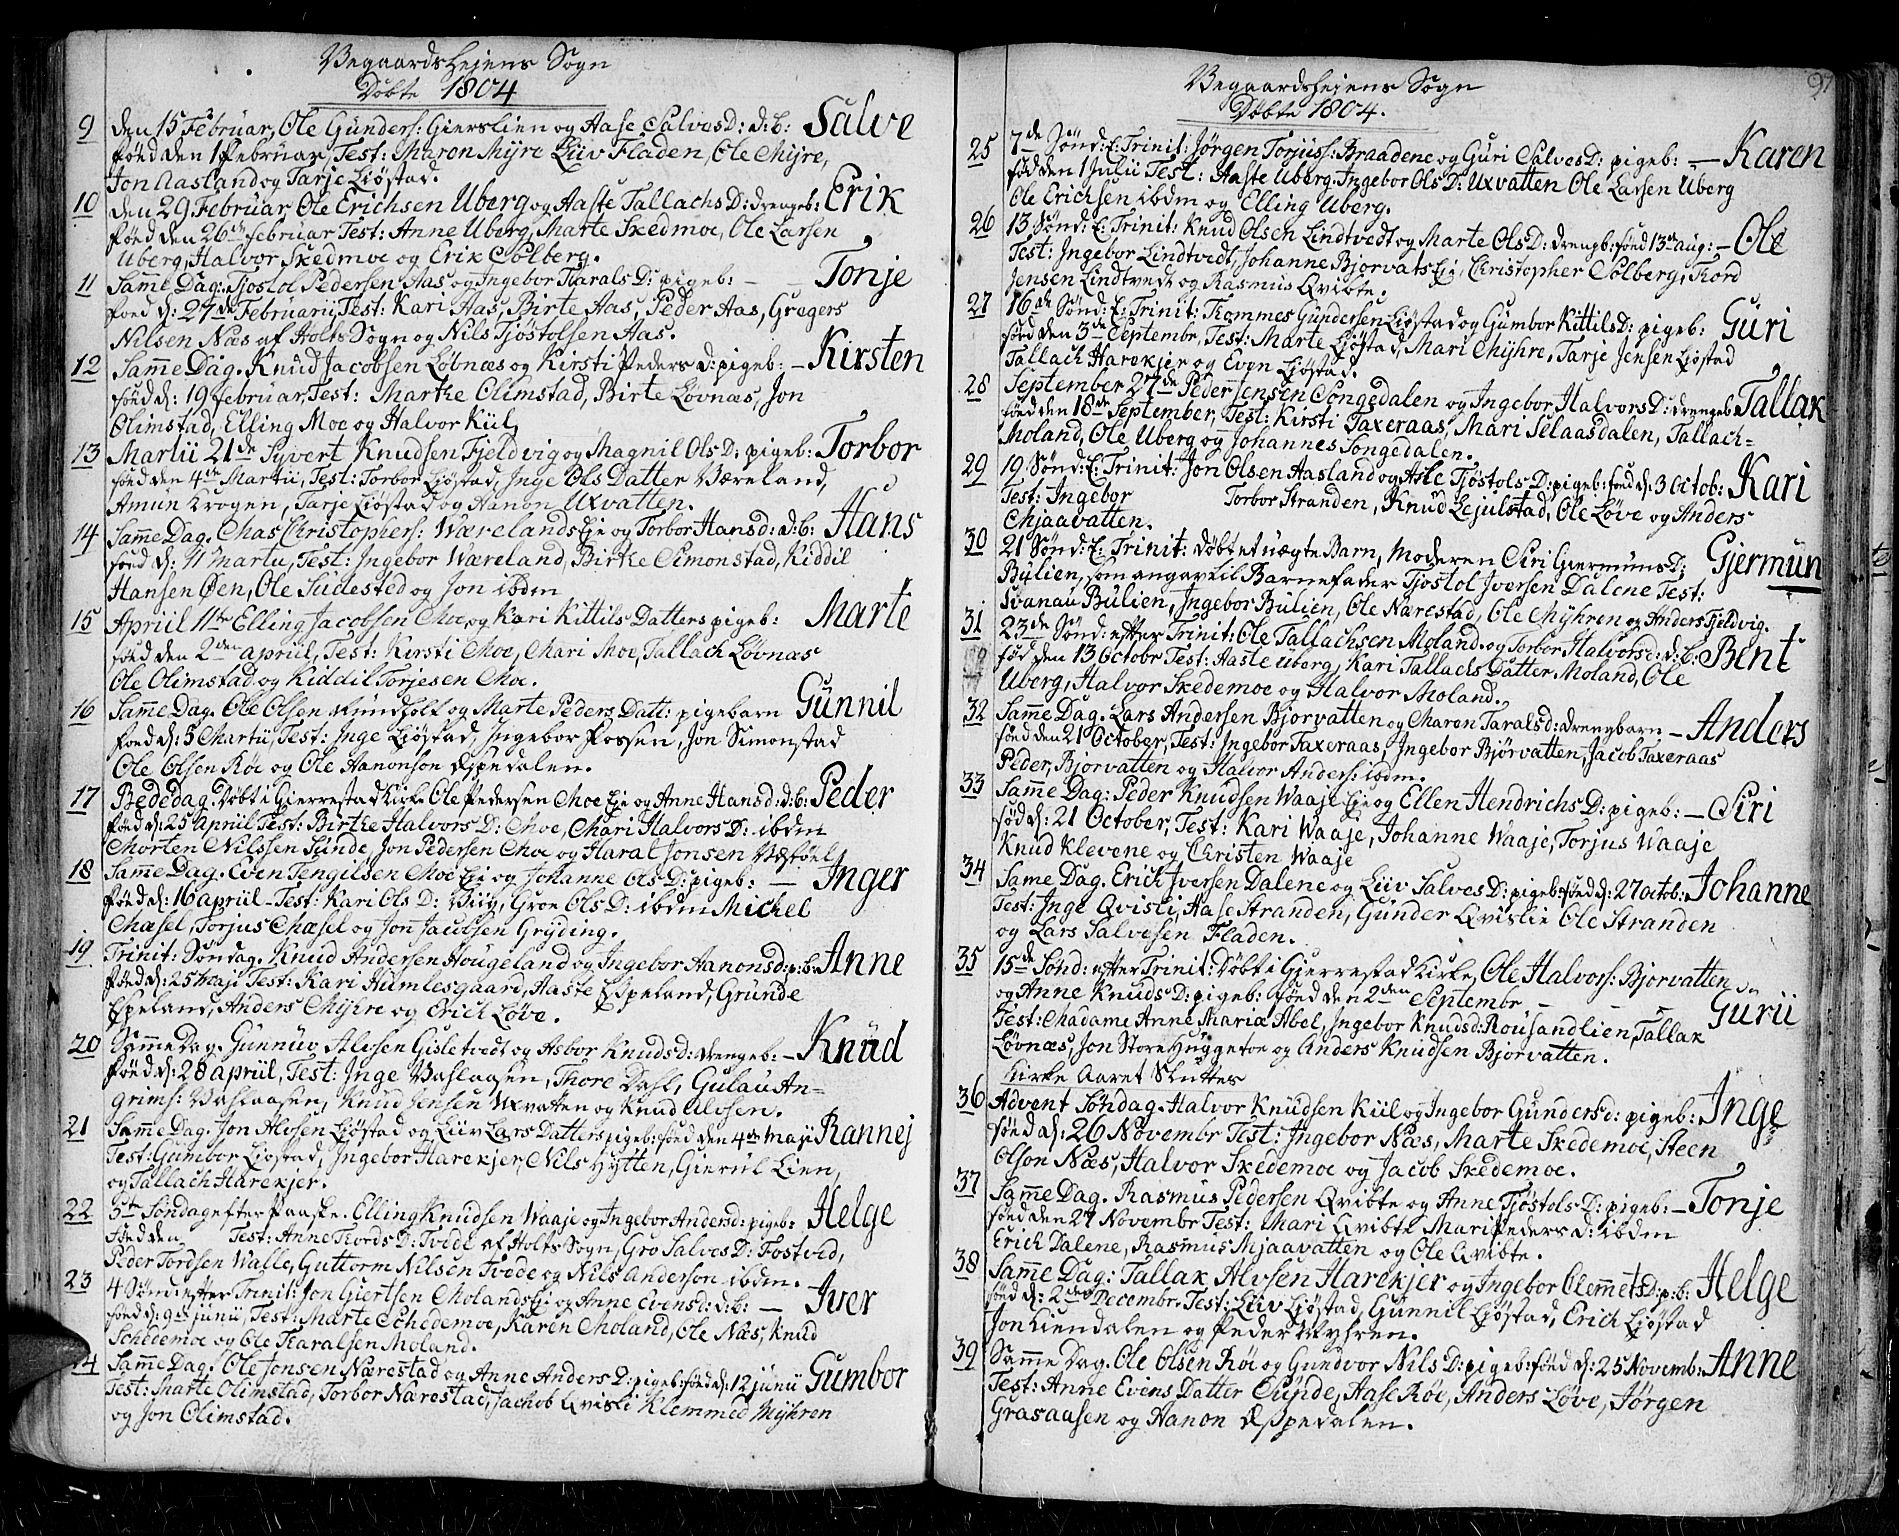 Vegaardsheiens Sogn
Døbte 1804
9 den 15 Februar, Ole Gunders: Gierslien og Aase SalvesD: d:b: Salve
føed den 1 Februar, Test: Maren Myre Liiv Fladen, Ole Myre,
Jon Aasland og Tarje Liøstad.
10 den 29 Februar Ole Erichsen Uberg og Aaste TallachsD: drengeb: Erik
føed den 26de februar Test: Anne Uberg, Marte Skedmoe, Ole Larsen
Uberg, Halvor Skedmoe og Erik Solberg.
11 Samme Dag: Tjøstol Pedersen Aas og Ingebor TharalsD: pigeb: Tonje
føed d: 27de Februarii, Test: Kari Aas, Birte Aas, Peder Aas, Gregers
Nilsen Næs af Holts Sogn og Nils Tjøstolsen Aas.
12 Samme Dag. Knud Jacobsen Løvnæs og Kirsti Peders D: pigeb: Kirsten
føed d: 19 februar, Test: Marthe Olimstad, Birte Løvnæs, Jon
Olimstad, Elling Moe og Halvor Kiil,
13 Martii 21de Syvert Knudsen Fjeldvig og Magnil OlsD: pigeb: Torbor
føed den 4de Martii, Test: Torbor Liøstad, Inge Ols Datter Væreland,
Amun Krogen, Tarje Liøstad og Hanon Uxvatten.
14 Samme Dag. Chas Christophers: WærelandsEje og Torbor Hansd: d:b: Hans
føed d: 11 Martii, Test: Ingebor Wæreland, Birthe Simonstad, Kiddil
Hansen Øen, Ole Sudested og Jon ibdm
15 Apriil 11te Elling Jacobsen Moe, og Kari Kittils Datters pigeb: Marte
føed den 2den apriil, Test: Kirsti Moe, Mari Moe, Tallach Løvnæs
Ole Olimstad og Kiddil Torjesen Moe.
16 Samme Dag. Ole Olsen Rundholt og Marte Peders Datt: pigebarn Gunnil
føed d: 5 Martii, Test: Inge Liøstad, Ingebor Fossen, Jon Simonstad
Ole Olsen Röe og Ole Aanonsøn Espedalen.
17 Bededag. Døbt i Gierrestad Kirke Ole Pedersen Moe Eje og Anne Hansd: d:b: Peder
føed d: 25 Apriil Test: Birthe HalvorsD: Moe, Mari HalvorsD: ibdm
Morten Nilssen Sunde, Jon Pedersen Moe og Haral Jonsen Væstøel
18 Samme Dag. Even Tengilsen Moe Eje og Johanne OlsD: pigeb: Inger
føed d: 16 apriil - Test: Kari OlsD: Viig, Groe OlsD: ibdm Michel
Mæsel, Torjus Mæsel og Jon Jacobsen Gryding.
19 Trinit: Søndag. Knud Andersen Hougeland og Ingebor Aanonsd: p:b: Anne
føed d: 25 Maji Test: Kari Humlesgaard, Haste Espeland, Grunde
Espeland, Anders Myhre og Erich Løve.
20 Samme Dag. Gunnuv Alvsen Gisletvedt og Asbor Knudsd: drengeb: Knud
føed d: 28 apriil, Test: Inge Vaslaasen, Thore Dahl, Gulau An=
grims: Vaslaasen, Knud Jensen Uxvatten og Knud Alvsen.
21 Samme Dag: Jon Alvsen Liøstad og Liiv Lars Datters pigeb: føed den 4de maji Rannej
Test: Gumbor Liøstad, Ingebor Harekjer, Nils Hytten, Gierul Lien,
og Tallach Harekjer.
22 5te Søndag efter Paaske. Elling Knudsen Waaje og Ingebor Andersd: pigeb: Helge
føed den Test: Anne Tords D: Tvede af Holts Sogn, Gro SalvesD: Fostved,
Peder Tordsen Walle, Guttorm Nilsen Tvede og Nils Andersøn ibdm.
23 4 Sønd: efter Trinit: Jon Giertsen Molands Eje og Anne Evensd: d:b: Iver
føed d: 9de junii, Test: Marte Schedemoe, Karen Moland, Ole Næs, Knud
Schedemoe og Ole Tharalsen Moland.
14 Samme Dag. Ole Jonsen Nærestad og Anne Anders D: pigeb: føed d: 12 junii Gumbor
Test: Marte Olimstad, Torbor Nærestad, Jachob Qvisli Klemmed Myhren
og Jon Olimstad.
97
Vegaardsheiens Sogn
Døbte 1804.
25 7de Sønd: E: Trinit: Jørgen Torjuss: Braadene og Guri SalvesD: pigeb: Karen
fød den 1 Julii Test: Aaste Uberg, Ingebor OlsD: Uxvatten Ole Larsen Uberg
Ole Erichsen ibdm og Elling Uberg.
26 13 Sønd: E: Trinit: Knud Olsen Lindtvedt og Marte OlsD: drengb: føed 13 aug: Ole
Test: Ingebor Lindtvedt, Johanne Bjorvats Eje, Christopher Solberg, Tord
Jensen Lindtvedt og Rasmus Qvibte.
27 16de Sønd: E: Trinit: Thommes Gundersen Liøstad og Gumbor KittilsD: pigeb: Guri
føed den 3de Septembr, Test: Marte Liøstad, Mari Myhre, Tarje Jensen Liøstad
Tallach Harekjer og Even Liøstad.
28 September 27de Peder Jensen Songedalen og Ingebor HalvorsD: drengeb. Tallak
føed den 18de September, Test: Kirsti Taxeraas, Mari Selaasdalen, Tallach=
Moland, Ole Uberg og Johannes Songedalen.
29 19 Sønd: E: Trinit: Jon Olsen Aasland og Asle TjøstolsD: pigeb: føed d: 3 Octob: Kari
Test: Ingebor Torbor Stranden, Knud Lejulstad, Ole Løve og Anders
Mjaavatten.
30 21 Sønd: E: Trinit: døbt et uægte Barn, Moderen Siri GiermunsD: Gjermun
Bylien, som angav til Barnefader Tjøstol Iversen Dalene Test:
Svanau Bulien, Ingebor Bulien, Ole Nærestad, Ole Myhren og Anders Fjeldvig.
31 23de Sønd: efter Trinit: Ole Tallachsen Moland og Torbor Halvorsd: d:b: Bent
fød den 13 Octobr Test: Aaste Uberg, Kari Tallachs Datter Moland, Ole
Uberg, Halvor Skedemoe og Halvor Moland.
32 Samme Dag. Lars Andersen Bjorvatten og Maren Taralsd: drengbarn Anders
føed den 21 October, Test: Ingebor Taxeraas, Ingebor Bjørvatten, Jacob Taxeraas
Peder Bjorvatten og Halvor Anders: ibdm.
33 Samme Dag: Peder Knudsen Waaje Eje og Ellen HendrichsD: pigeb: Siri
fød d: 21 October, Test: Kari Waaje, Johanne Waaje, Torjus Waaje
Knud Klevene og Christen Waaje
34 Same Dag. Erich Iversen Dalene og Liiv SalvesD: pigeb: føed d: 27 octob: Johanne
Test: Inge Qvisli, Aase Stranden, Gunder Qvislie Ole Stranden
og Lars Salvesen Fladen.
35 15de Sønd: efter Trinit: Døbt i Gjerrestad Kirke, Ole Halvors: Bjorvatten
og Anne KnudsD: pigeb: føed den 2den Septembr Gurii
Test: Madame Anne Maria Abel, Ingebor Knudsd: Rousandlien, Tallak
Løvnæs, Jon Store Huggetoe og Anders Knudsen Bjorvatten.
Kirke Aaret Sluttes
36 Advent Søndag. Halvor Knudsen Kiil og Ingebor Gundersd: pigeb: Inge
føed d: 26 Novembr Test: Ingebor Næs, Marte Skedemoe, Steen
Olsøn Næs, Halvor Skedemoe og Jacob Skedemoe.
37 Samme Dag. Rasmus Pedersen Qvibte og Anne TjøstolsD: pigeb: Tonje
føed den 27 Novembr Test: Mari Qvibte Mari Peders D: ibdm
Erich Dalene, Rasmus Mjaavatten og Ole Qvibte.
38 Samme Dag: Tallak Alvsen Harekjer og Ingebor ClemmetsD: p:b: Helge
føed d: 2den Decembr. Test: Liiv Liøstad, Gunnil Liøstad, Erich Liøstad
Jon Liendalen og Peder Myhren.
39 Samme Dag. Ole Olsen Röe og Gundvor NilsD: pigeb: føed d: 25 Novemb: Anne
Test: Anne Evens Datter Sunde, Aase Röe, Anders Løve, Jørgen
Grasaasen og Aanon Espedalen.